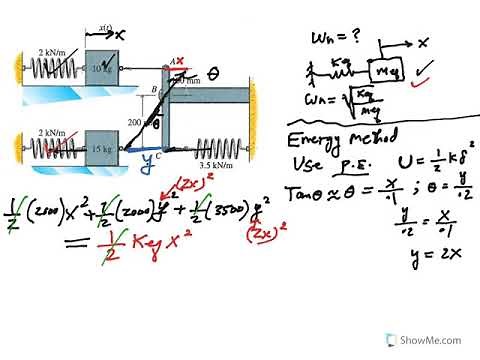 x(t) x
2 kN/m
10 kg
A x
θ
B
200
θ
2 kN/m
15 kg
y C
3.5 kN/m
Wn = ?
x
Keq
meq
Wn = √Keq/meq
Energy method
Use P.E. U = 1/2 k δ²
Tanθ ≈ θ = x/.1 ; θ = y/.2
y/.2 = x/.1
y = 2x
(2x)²
1/2 (2000) x² + 1/2 (2000) y² + 1/2 (3500) y²
(2x)²
= 1/2 Keq x²
ShowMe.com